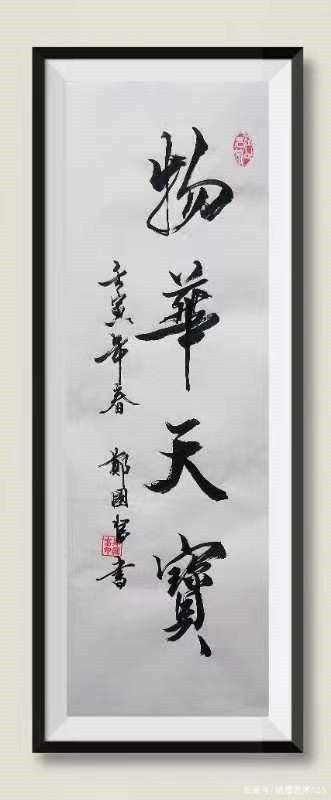 物華天寶
壬寅年春 鄭國書
百家号/精墨艺术123